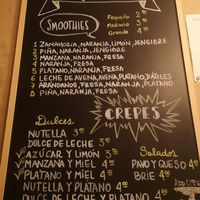 SMOOTHIES
Pequeño 2
Mediano 3
Grande 4
1 ZANAHORIA, NARANJA, LIMÓN, JENGIBRE
2 PIÑA, NARANJA, JENGIBRE
3 MANZANA, NARANJA, FRESA
4 NARANJA, FRESA
5 PLATANO, NARANJA, FRESA
6 LECHE DE AVENA, AVENA, PLATANO, DÁTILES
7 ARÁNDANOS, FRESA, NARANJA, PLATANO
8 PIÑA, NARANJA, FRESA
CREPES
Dulces
NUTELLA 3
DULCE DE LECHE 3
AZÚCAR Y LIMÓN 3
MANZANA Y MIEL 4
PLATANO Y MIEL 4
NUTELLA Y PLATANO 4
DULCE DE LECHE Y PLATANO
Salados
PAVO Y QUESO 4
BRIE 4